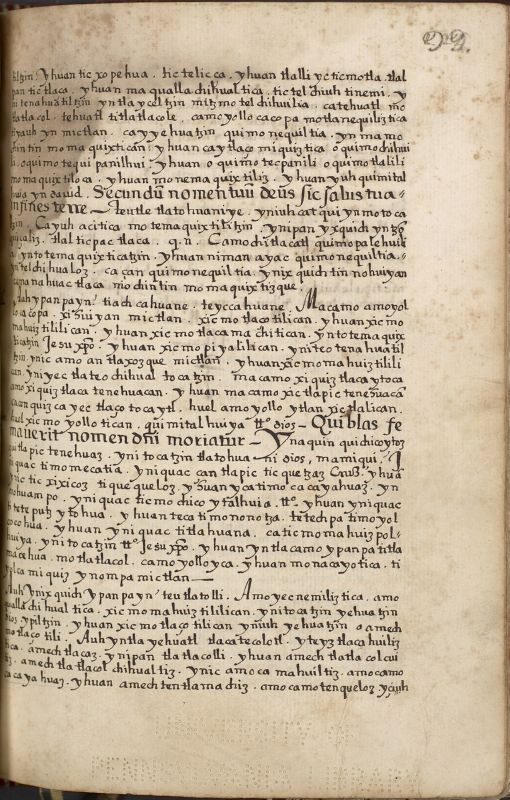 tiltzin. yhuan tic xo pe hua. tic telicca. yhuan tlalli yc ticmotla. tlal
pan tic tlaca. yhuan ma qualla chihual tica. tic tel chiuh tinemi. y
ni tenahuatiltzin yn tla yceltzin mitzmo tel chihuilia. ca tehuatl mo
tlatlacol. tehuatl titlatlacole. camo yollo caco pa motlanequiliztica
tiyauh yn mictlan. ca yyehuatzin quimo nequiltia. yn ma mo
chintin mo maquixtican. yhuan ca ytlaço miquiztica oquimo chihui
li. oquimo tequi panilhui yhuan oquimo tecpanili oquimo tlalili
mo maquixtiloca. yhuan mo nemaquixtiliz. yhuan yuh quimital
huia yn dauid. Secundū nomen tuū deūs sic salus tua
in fines terre — teutle tlatohuaniye. yniuh cat qui yn mo toca
tzin. Ca yuh acitica mo temaquixtiliztzin. ynipan yxquich yntzō
quicaliz. tlalticpac tlaca. q. n. Camo chi tlacatl quimo palehuili
a ynto temaquixticatzin. yhuan niman ayac quimo nequiltia.
yn tel chihualoz. ca çan quimo nequiltia. ynix quichtin nohuiyan
cemanahuac tlaca mochintin mo maquixtizque.
Auh ypan payn. tiachcahuane. teyccahuane. Macamo amo yol
lo cacopa. xi huiyan mictlan. xicmo tlaço tilican. yhuan xicmo
mahuiz tililican. yhuan xicmo tlaca machitican. ynto temaquix
ticatzin Jesu xpō. yhuan xicmo piyalilican. yniteo tenahuatil
tzin. ynic amo an tlaxozque mictlan. yhuan xicmo mahuiztilili
can. yniyec tlateochihual tocatzin. macamo xiquiztlaca ytoca
amo xiquiztlaca tenehuacan. yhuan macamo xic tlapic tenehuacā
ca çan quizca yec tlaço tocaytl. huel amo yollo ytlan xic tlalican.
huel xicmo yollotican. quimitalhuiya tt.º dios — Qui blas fe
maverit nomen dnī moriatur — Ynaquin quichicoytoz
quitlapictenehuaz. ynitocatzin tlatohuani dios, mamiqui. I
niquac timomecatia. yniquac çan tlapic tic queçaz Cruz. yhuā
ynic tic xixicoz tiquequeloz. yhuan yca timo cacayahuaz. yn
mohuampo. yniquac ticmo chico ytalhuia. tt.º yhuan yniquac
ti tete putz ytohua. yhuan teca timononotza. tetechpa timoyol
cocohua. yhuan yniquac titlahuana. ca ticmo mahuizpol
huiya. ynitocatzin tt.º Jesu xpō. yhuan yntlacamo ypanpa titla
macehua. motlatlacol. camo yolloyca. yhuan monacayotica. ti
yolca miquiz ynompa mictlan —
Auh ynix quich ypan payn. teutlatolli. Amo yec nemiliztica. amo
qualla chihualtica. xicmo mahuiztililican. ynitocatzin yehuatzin
dios ypiltzin. yhuan xicmo tlaço tilican yniuh yehuatzin oamech
mo tlaço tili. Auh yntla yehuatl tlacatecolotl. yteyztlacahuiliz
tica. amech tlacaz. ynipan tlatlacolli. yhuan amech tlatla colcui
tiz. amech tlatlacol chihualtiz. ynic amo ca mahuiltiz. amo camo
cacayahuaz. yhuan amech tentlamachiz. amo camo tenqueloz yciuh